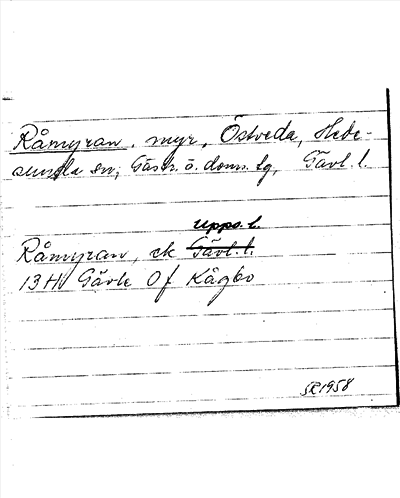 Råmyran, myr, Östveda, Hede-
sunda sn, Gästr. ö. doms. lg, Gävl. l.
Upps. l.
Råmyran, ek Gävl. l.
13H Gävle 0f Kågbo
SR 1958